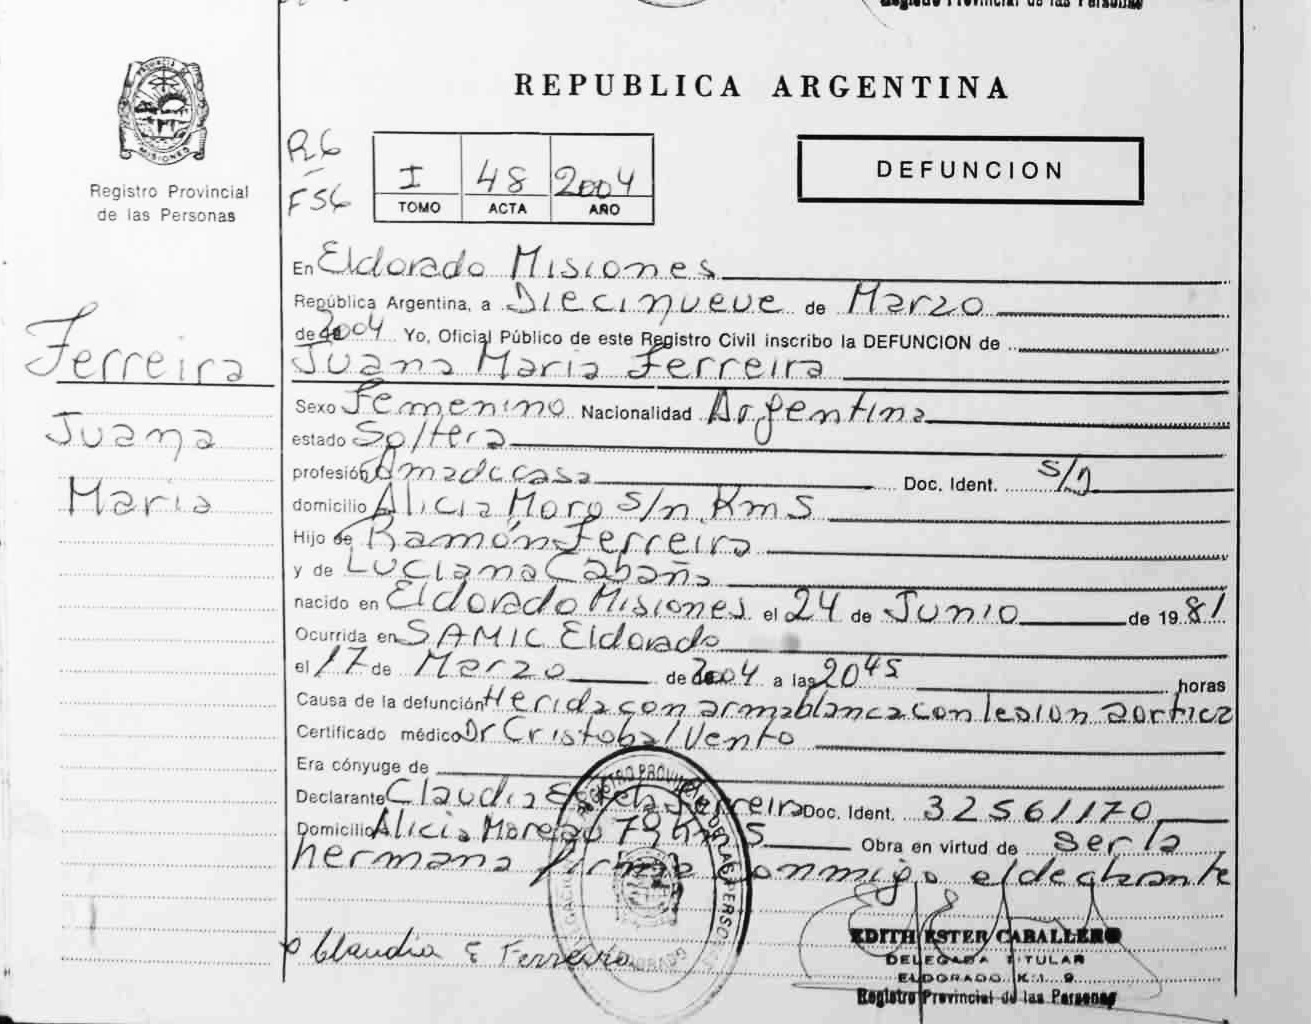 Registro Provincial de las Personas
REPUBLICA ARGENTINA
PROVINCIA DE
MISIONES
Registro Provincial
de las Personas
I 48 2004
TOMO ACTA AÑO
DEFUNCION
En Eldorado Misiones
República Argentina, a Diecinueve de Marzo
de 2004 Yo, Oficial Público de este Registro Civil inscribo la DEFUNCION de
Juana Maria Ferreira
Ferreira
Juana
Maria
Sexo Femenino Nacionalidad Argentina
estado Soltera
profesión Ama de casa Doc. Ident.
domicilio Alicia Moro s/n Km 5
Hijo de Ramón Ferreira
y de Luciana Cabaña
nacido en Eldorado Misiones el 24 de Junio de 1981
Ocurrida en SAMIC Eldorado
el 17 de Marzo de 2004 a las 20 45 horas
Causa de la defunción Herida con arma blanca con lesion aortica
Certificado médico Dr Cristobal Vento
Era cónyuge de
Declarante Claudia Estela Ferreira Doc. Ident. 32561170
Domicilio Alicia Km 5 Obra en virtud de ser la
hermana firma conmigo
Claudia E Ferreira
EDITH ESTER CABALLERO
DELEGADA TITULAR
ELDORADO K:1. 9
Registro Provincial de las Personas